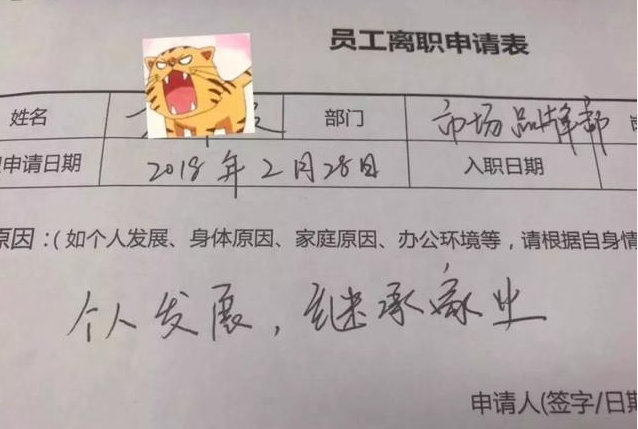 员工离职申请表
姓名 部门 市场品牌部
申请日期 2018年2月28日 入职日期
原因：(如个人发展、身体原因、家庭原因、办公环境等，请根据自身情
个人发展，继承家业
申请人(签字/日期